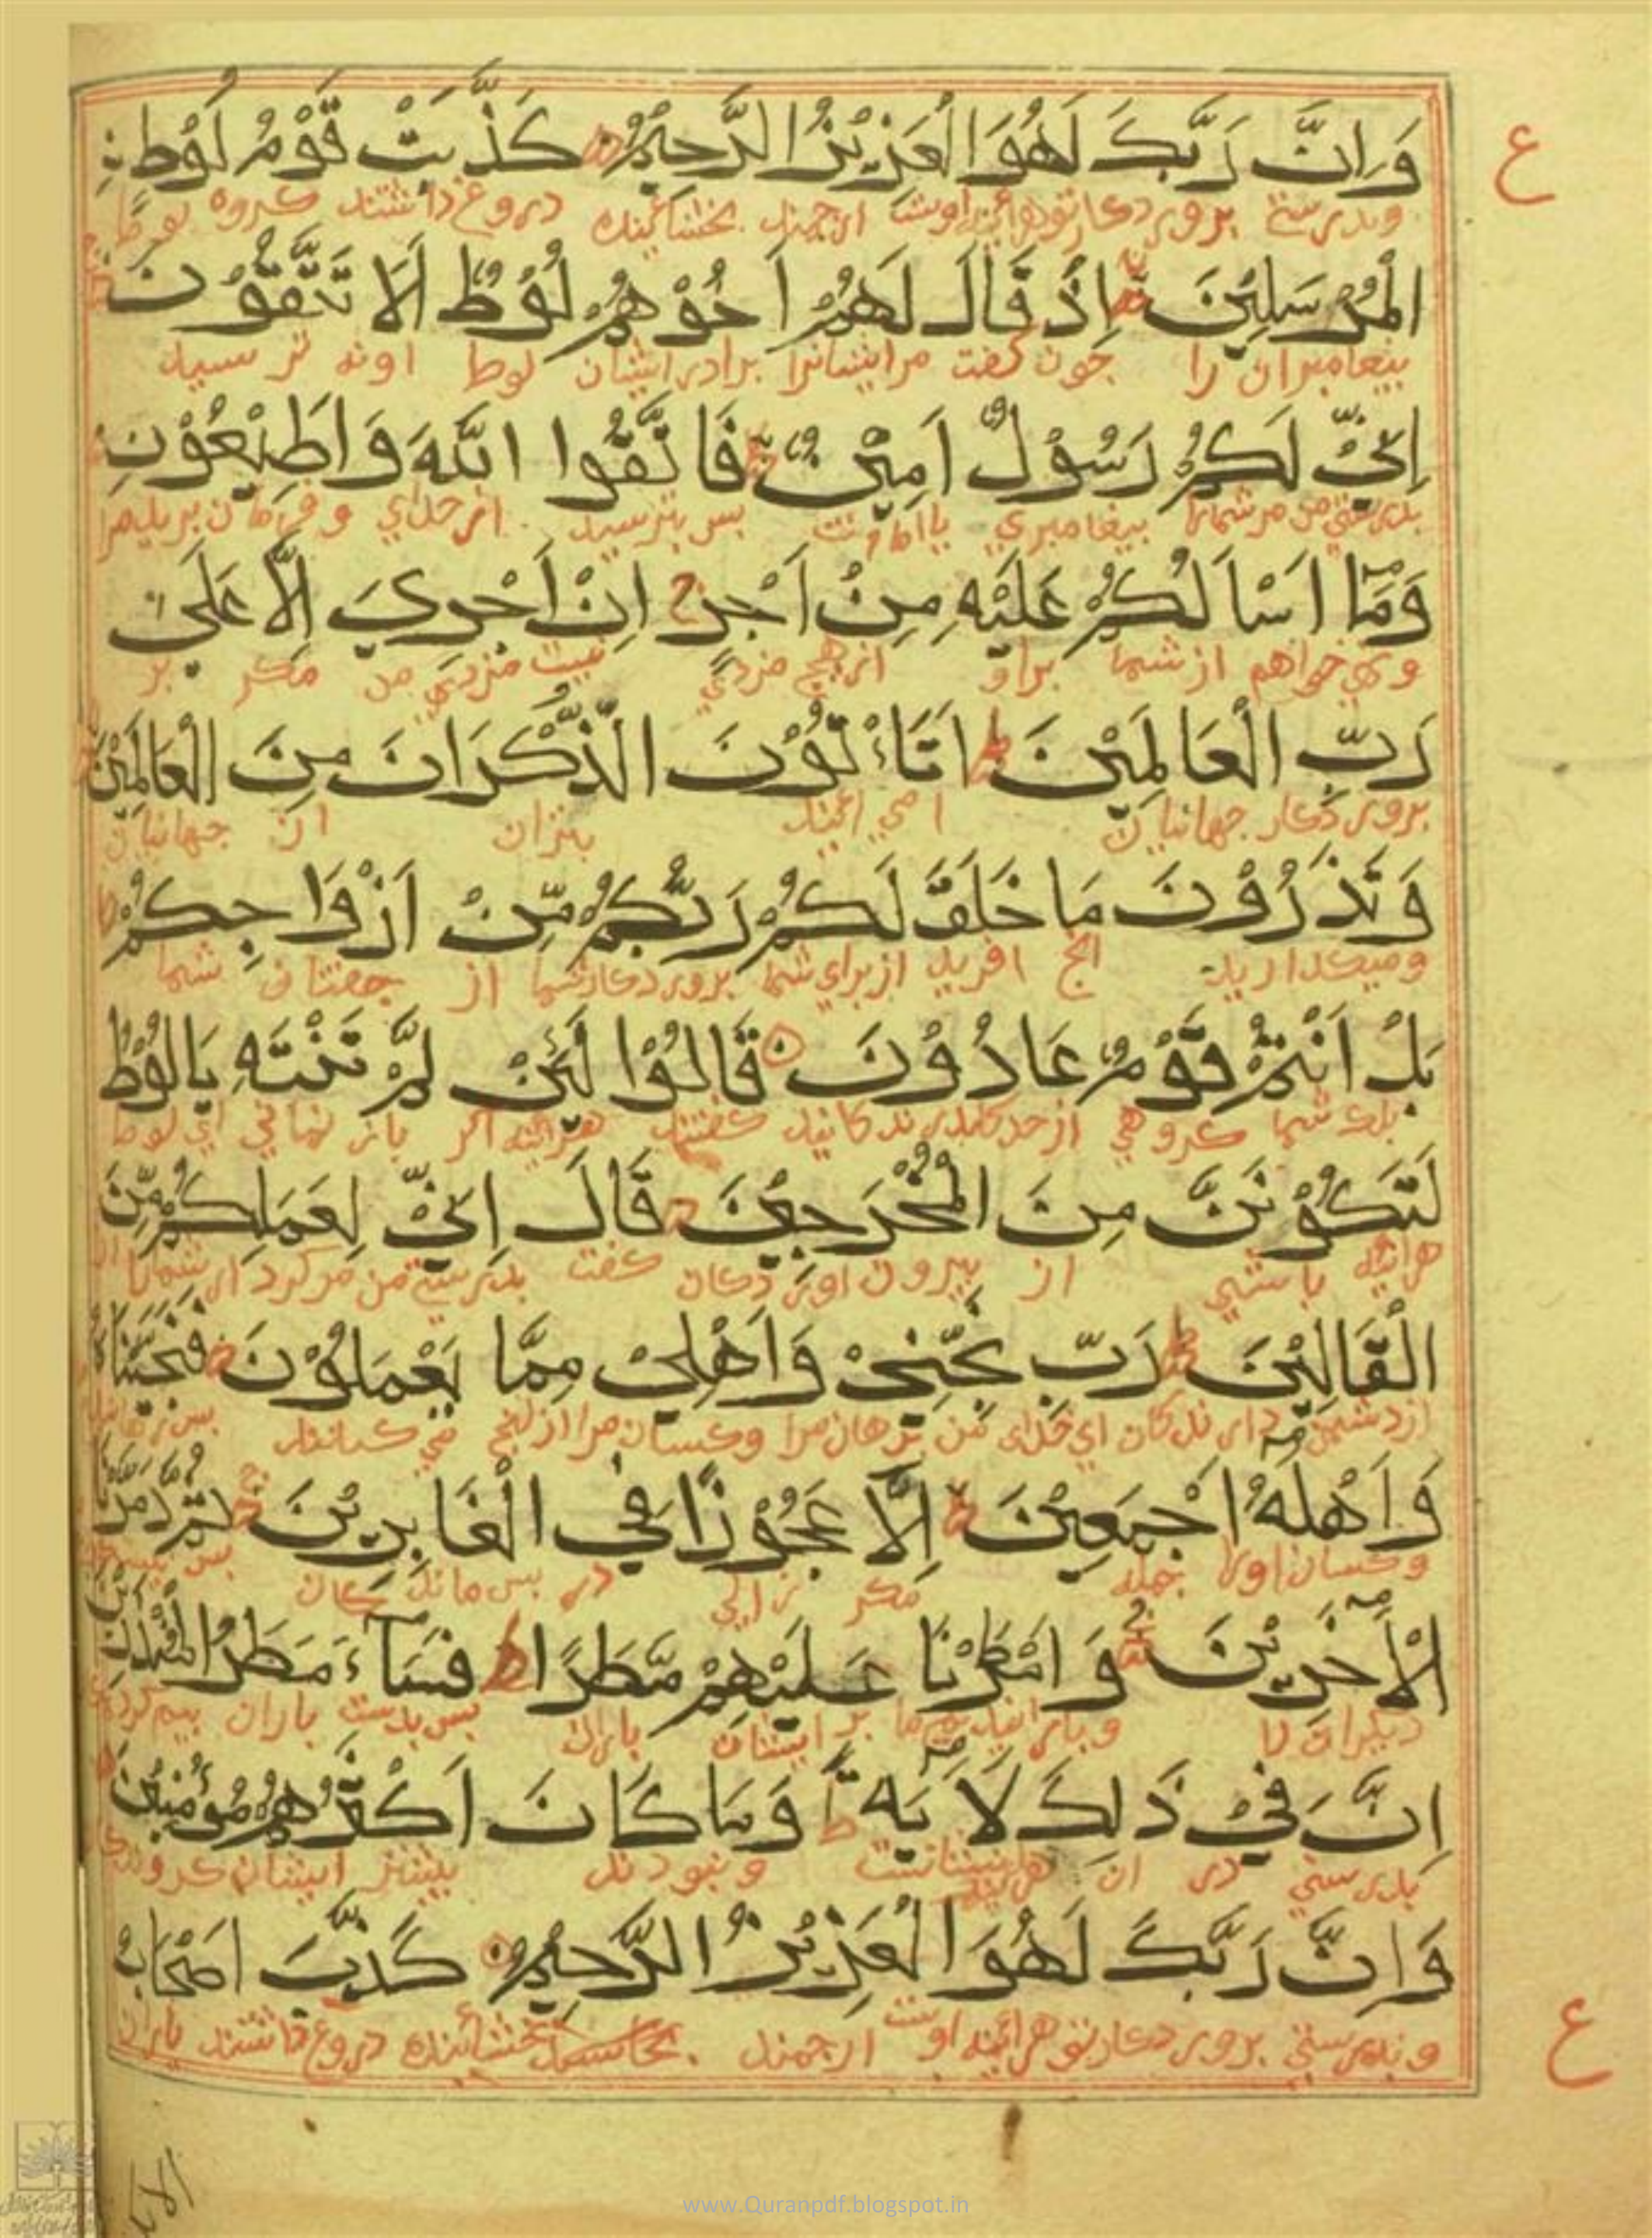 وَاِنَّ رَبَّكَ لَهُوَ الْعَزِيْزُ الرَّحِيْمُ كَذَّبَتْ قَوْمُ لُوْطِ
ع
وبدرستي پروردكار تو هرآينه اوست ارجمند بخشاينده دروغ داشتند كروه لوط
الْمُرْسَلِيْنَ اِذْ قَالَ لَهُمْ اَخُوْهُمْ لُوْطٌ اَلَا تَتَّقُوْنَ
پيغامبران را چون كفت مرايشانرا برادر ايشان لوط
اِنِّيْ لَكُمْ رَسُوْلٌ اَمِيْنٌ فَاتَّقُوا اللّٰهَ وَاَطِيْعُوْنِ
بدرستي من مر شمارا پيغامبري با امانت پس بترسيد از خداي و فرمان بريد مرا
وَمَا اَسْاَلُكُمْ عَلَيْهِ مِنْ اَجْرٍ اِنْ اَجْرِيَ اِلَّا عَلٰى
ونمي خواهم از شما براو از هيچ مزدي نيست مزد من مكر بر
رَبِّ الْعَالَمِيْنَ اَتَاْتُوْنَ الذُّكْرَانَ مِنَ الْعَالَمِيْنَ
پروردكار جهانيان ا مي آئيد بنران از جهانيان
وَتَذَرُوْنَ مَا خَلَقَ لَكُمْ رَبُّكُمْ مِّنْ اَزْوَاجِكُمْ
وميكذاريد انچ افريد از براي شما پروردكار شما از جفتان شما
بَلْ اَنْتُمْ قَوْمٌ عَادُوْنَ قَالُوْا لَئِنْ لَّمْ تَنْتَهِ يَالُوْطُ
بلك شما كروهي از حد كذرندكانيد كفتند هرآينه اكر باز نه ايي اي لوط
لَتَكُوْنَنَّ مِنَ الْمُخْرَجِيْنَ قَالَ اِنِّيْ لِعَمَلِكُمْ مِّنَ
هرآينه باشي از بيرون اوردكان كفت بدرستي من مر كردار شمارا
الْقَالِيْنَ رَبِّ نَجِّنِيْ وَاَهْلِيْ مِمَّا يَعْمَلُوْنَ فَنَجَّيْنَاهُ
از دشمن دارندكان اي خداي من برهان مرا وكسان مرا از انچ مي كنند
وَاَهْلَهٗ اَجْمَعِيْنَ اِلَّا عَجُوْزًا فِي الْغَابِرِيْنَ ثُمَّ دَمَّرْنَا
وكسان اورا جمله مكر زالي در پس ماندكان
الْاٰخَرِيْنَ وَاَمْطَرْنَا عَلَيْهِمْ مَّطَرًا فَسَآءَ مَطَرُ الْمُنْذَرِيْنَ
ديكران را وبارانيديم ما بر ايشان باران پس بدست باران بيم كردكان
اِنَّ فِيْ ذٰلِكَ لَاٰيَةً وَمَا كَانَ اَكْثَرُهُمْ مُؤْمِنِيْنَ
بدرستي در ان هرآينه نشانست ونبودند بيشتر ايشان
وَاِنَّ رَبَّكَ لَهُوَ الْعَزِيْزُ الرَّحِيْمُ كَذَّبَ اَصْحَابُ
ع
وبدرستي پروردكار تو هرآينه اوست ارجمند بخشاينده دروغ داشتند ياران
www.Quranpdf.blogspot.in